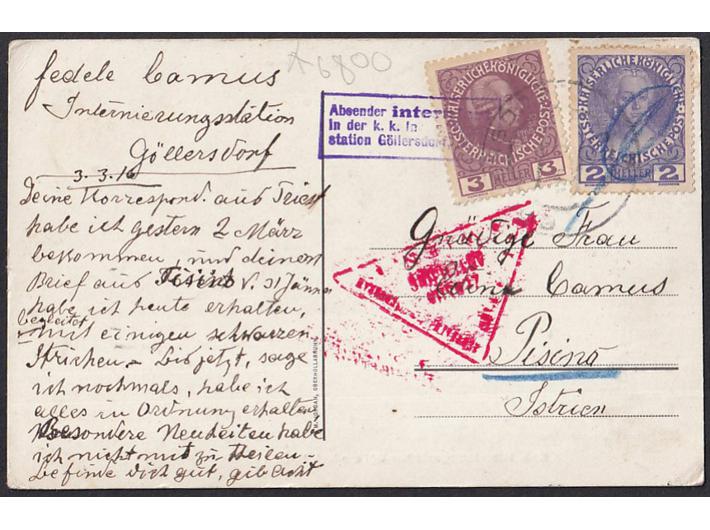 A 6800
fedele Camus
Internierungsstation
Göllersdorf
3.3.16
Deine Korrespond. aus Triest
habe ich gestern 2 März
bekommen, und deinem
Brief aus Pisino v. 31 Jänner
habe ich heute erhalten,
begleitet
mit einigen schwarzen
Strichen - Bis jetzt, sage
ich nochmals, habe ich
alles in Ordnung erhalten
Besondere Neuheiten habe
ich nicht mit zu theilen -
befinde dich gut, gib Acht
Absender inter
in der k. k. In
station Göllersdorf
KAISERLICHE KÖNIGLICHE
ÖSTERREICHISCHE POST
3 HELLER 3
KAISERLICHE KÖNIGLICHE
ÖSTERREICHISCHE POST
2 HELLER 2
Gnädige Frau
Camus
Pisino
Istrien
OBERHOLLABRUNN